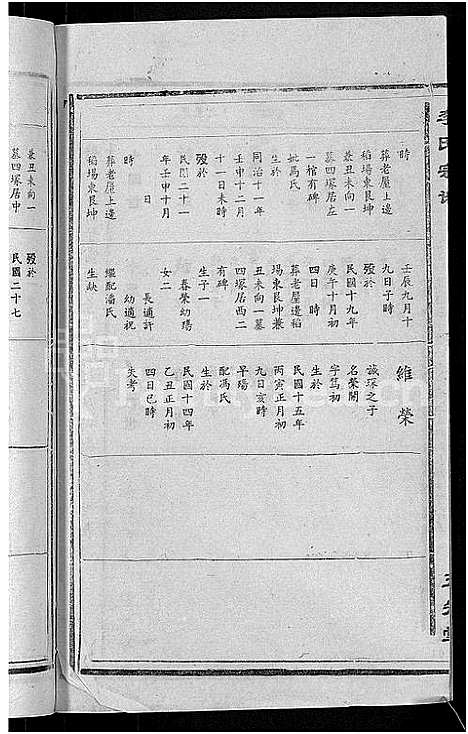 李氏宗
時
葬老屋上邊
稻場東艮坤
兼丑未向一
墓四塚居左
一棺有碑
妣馮氏
生於
同治十一年
壬申十二月
十一日未時
歿於
民國二十一
年壬申十月
日
時
葬老屋上邊
稻場東艮坤
壬辰九月十
九日子時
歿於
民國十九年
庚午十月初
四日 時
葬老屋邊稻
場東艮坤兼
丑未向一墓
四塚居西二
有碑
生子一
春榮幼殤
女二
長適許
幼適祝
繼配潘氏
生缺
維榮
誠琛之子
名榮開
字篤初
生於
民國十五年
丙寅正月初
九日亥時
早殤
配馮氏
生於
民國十四年
乙丑正月初
四日巳時
失考
兼丑未向一
墓四塚居中
歿於
民國二十七